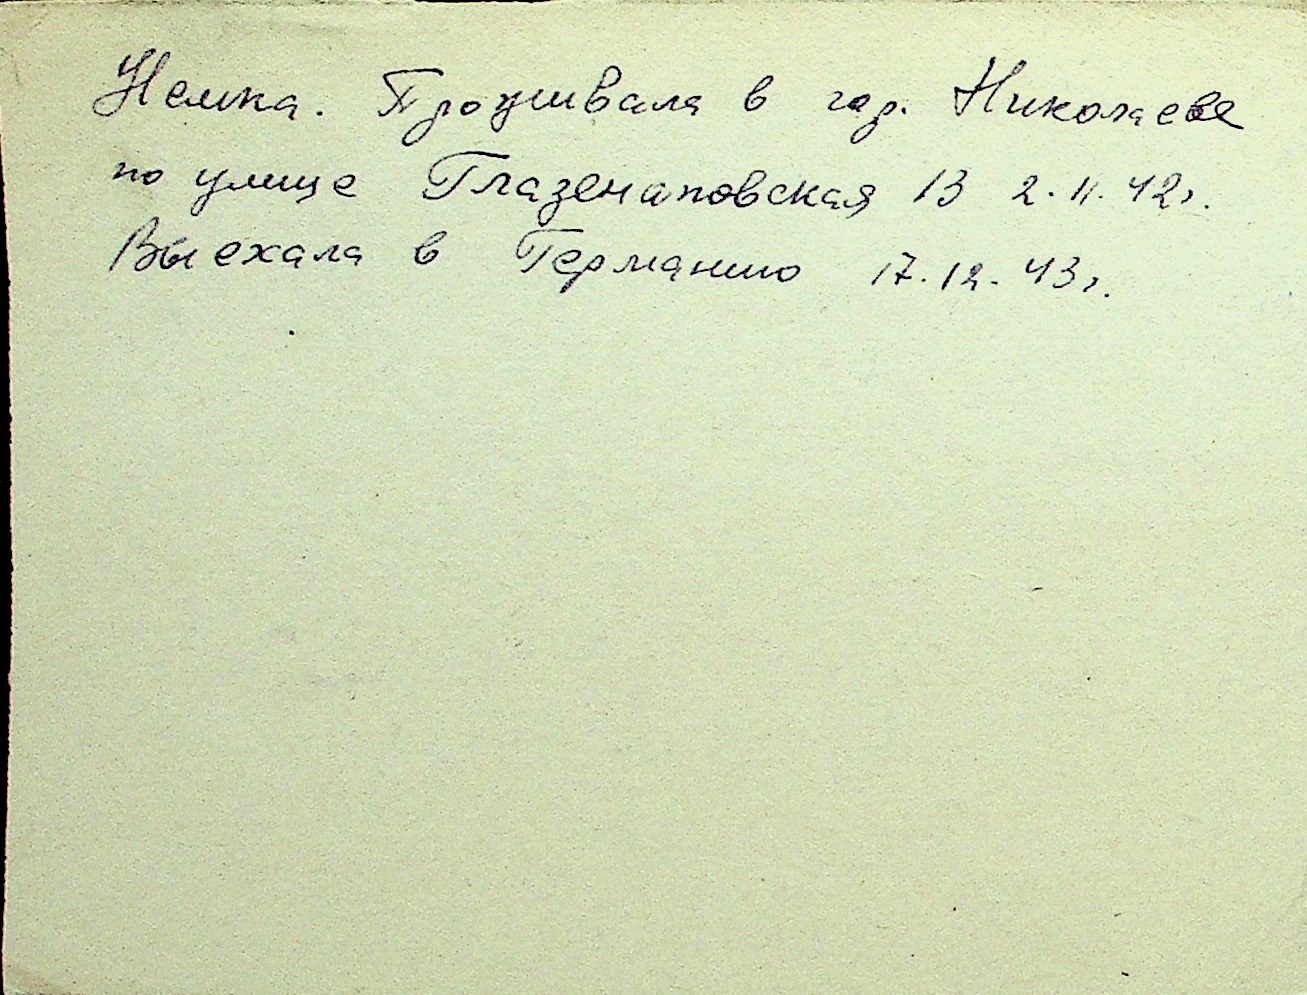 Немка. Проживала в гор. Николаеве
по улице Глазенаповская 13 2.11.42г.
Выехала в Германию 17.12.43г.